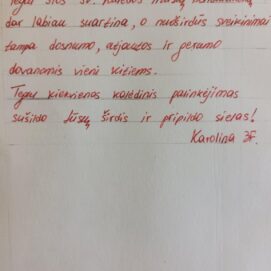 Tegul šios šv. Kalėdos mūsų bendruomenę
dar labiau suartina, o nuoširdūs sveikinimai
tampa dosnumo, atjautos ir gerumo
dovanomis vieni kitiems.
Tegu kiekvienas kalėdinis palinkėjimas
sušildo Jūsų širdis ir pripildo sielas!
Karolina 3F.